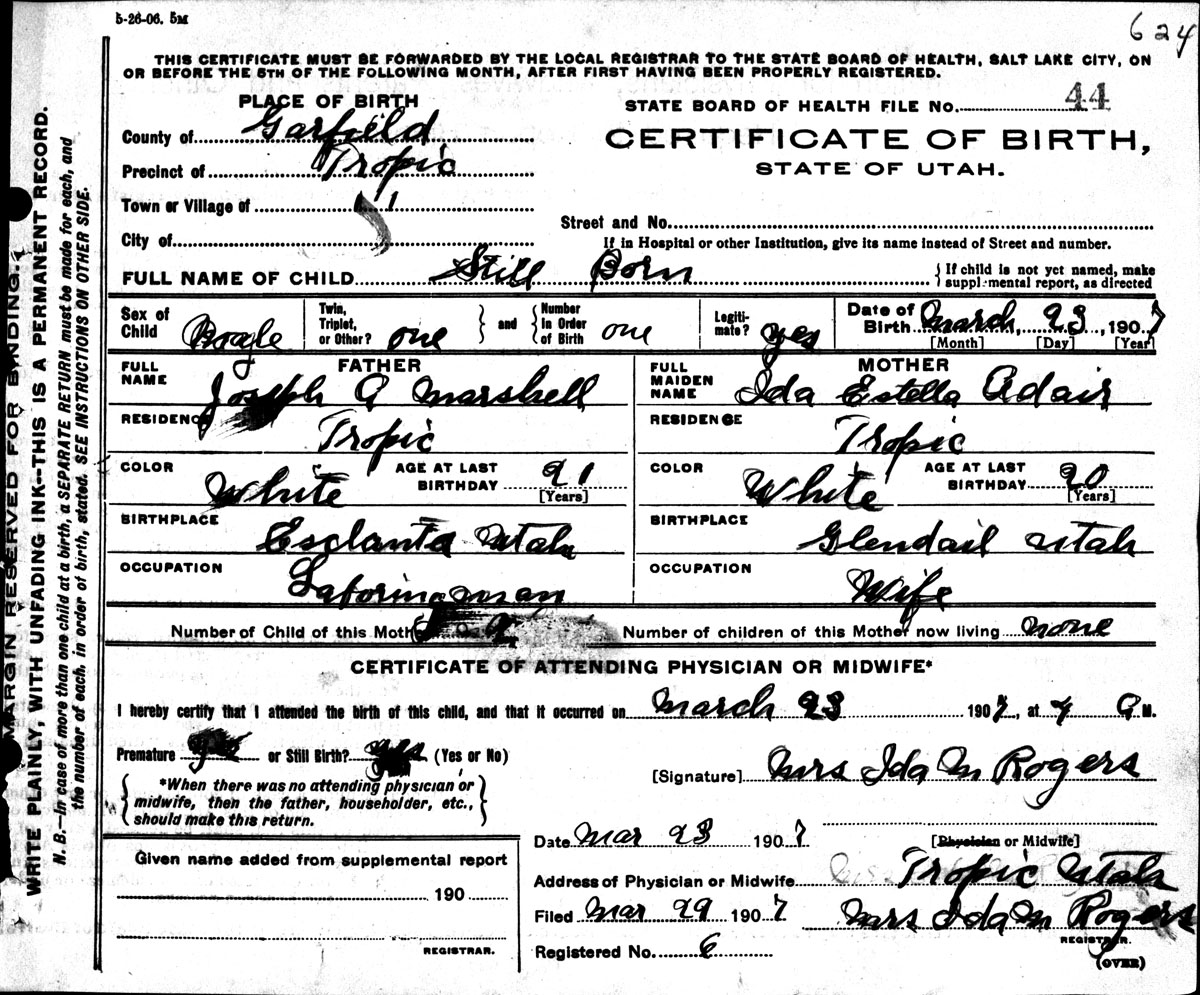 5-26-06. 5M
624
THIS CERTIFICATE MUST BE FORWARDED BY THE LOCAL REGISTRAR TO THE STATE BOARD OF HEALTH, SALT LAKE CITY, ON
OR BEFORE THE 5TH OF THE FOLLOWING MONTH, AFTER FIRST HAVING BEEN PROPERLY REGISTERED.
PLACE OF BIRTH
STATE BOARD OF HEALTH FILE No. 44
County of Garfield
CERTIFICATE OF BIRTH,
Precinct of Tropic
STATE OF UTAH.
Town or Village of "
Street and No.
City of
If in Hospital or other Institution, give its name instead of Street and number.
FULL NAME OF CHILD Still Born
{ If child is not yet named, make
supplemental report, as directed
Sex of Child
Twin, Triplet, or Other? one } and { Number in Order of Birth one
Legiti-mate? yes
Date of Birth March, 23, 1907
[Month] [Day] [Year]
FATHER
FULL NAME Joseph A Marshell
RESIDENCE Tropic
COLOR White AGE AT LAST BIRTHDAY 21
[Years]
BIRTHPLACE Esclanta Utah
OCCUPATION Laboring man
MOTHER
FULL MAIDEN NAME Ida Estella Adair
RESIDENCE Tropic
COLOR White AGE AT LAST BIRTHDAY 20
[Years]
BIRTHPLACE Glendail Utah
OCCUPATION Wife
Number of Child of this Mother
Number of children of this Mother now living none
CERTIFICATE OF ATTENDING PHYSICIAN OR MIDWIFE*
I hereby certify that I attended the birth of this child, and that it occurred on March 23 1907, at 4 A M.
Premature yes or Still Birth? yes (Yes or No)
[Signature] Mrs Ida M Rogers
{ *When there was no attending physician or
midwife, then the father, householder, etc.,
should make this return. }
Date Mar 23 1907
[Physician or Midwife]
Given name added from supplemental report
190
REGISTRAR.
Address of Physician or Midwife Tropic Utah
Filed Mar 29 1907 Mrs Ida M Rogers
REGISTRAR.
Registered No. 6
(OVER)
MARGIN RESERVED FOR BINDING.
WRITE PLAINLY, WITH UNFADING INK--THIS IS A PERMANENT RECORD.
N. B.—In case of more than one child at a birth, a SEPARATE RETURN must be made for each, and
the number of each, in order of birth, stated. SEE INSTRUCTIONS ON OTHER SIDE.